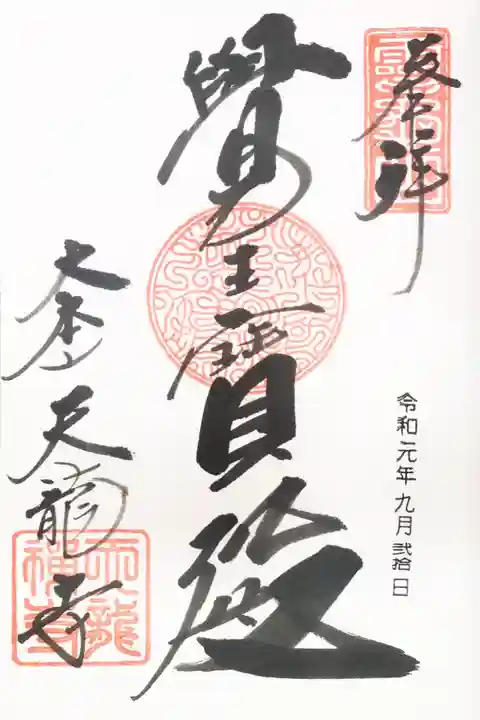 奉拝
令和元年九月弐拾日
覺王寶殿
大本山天龍寺
天龍禅寺